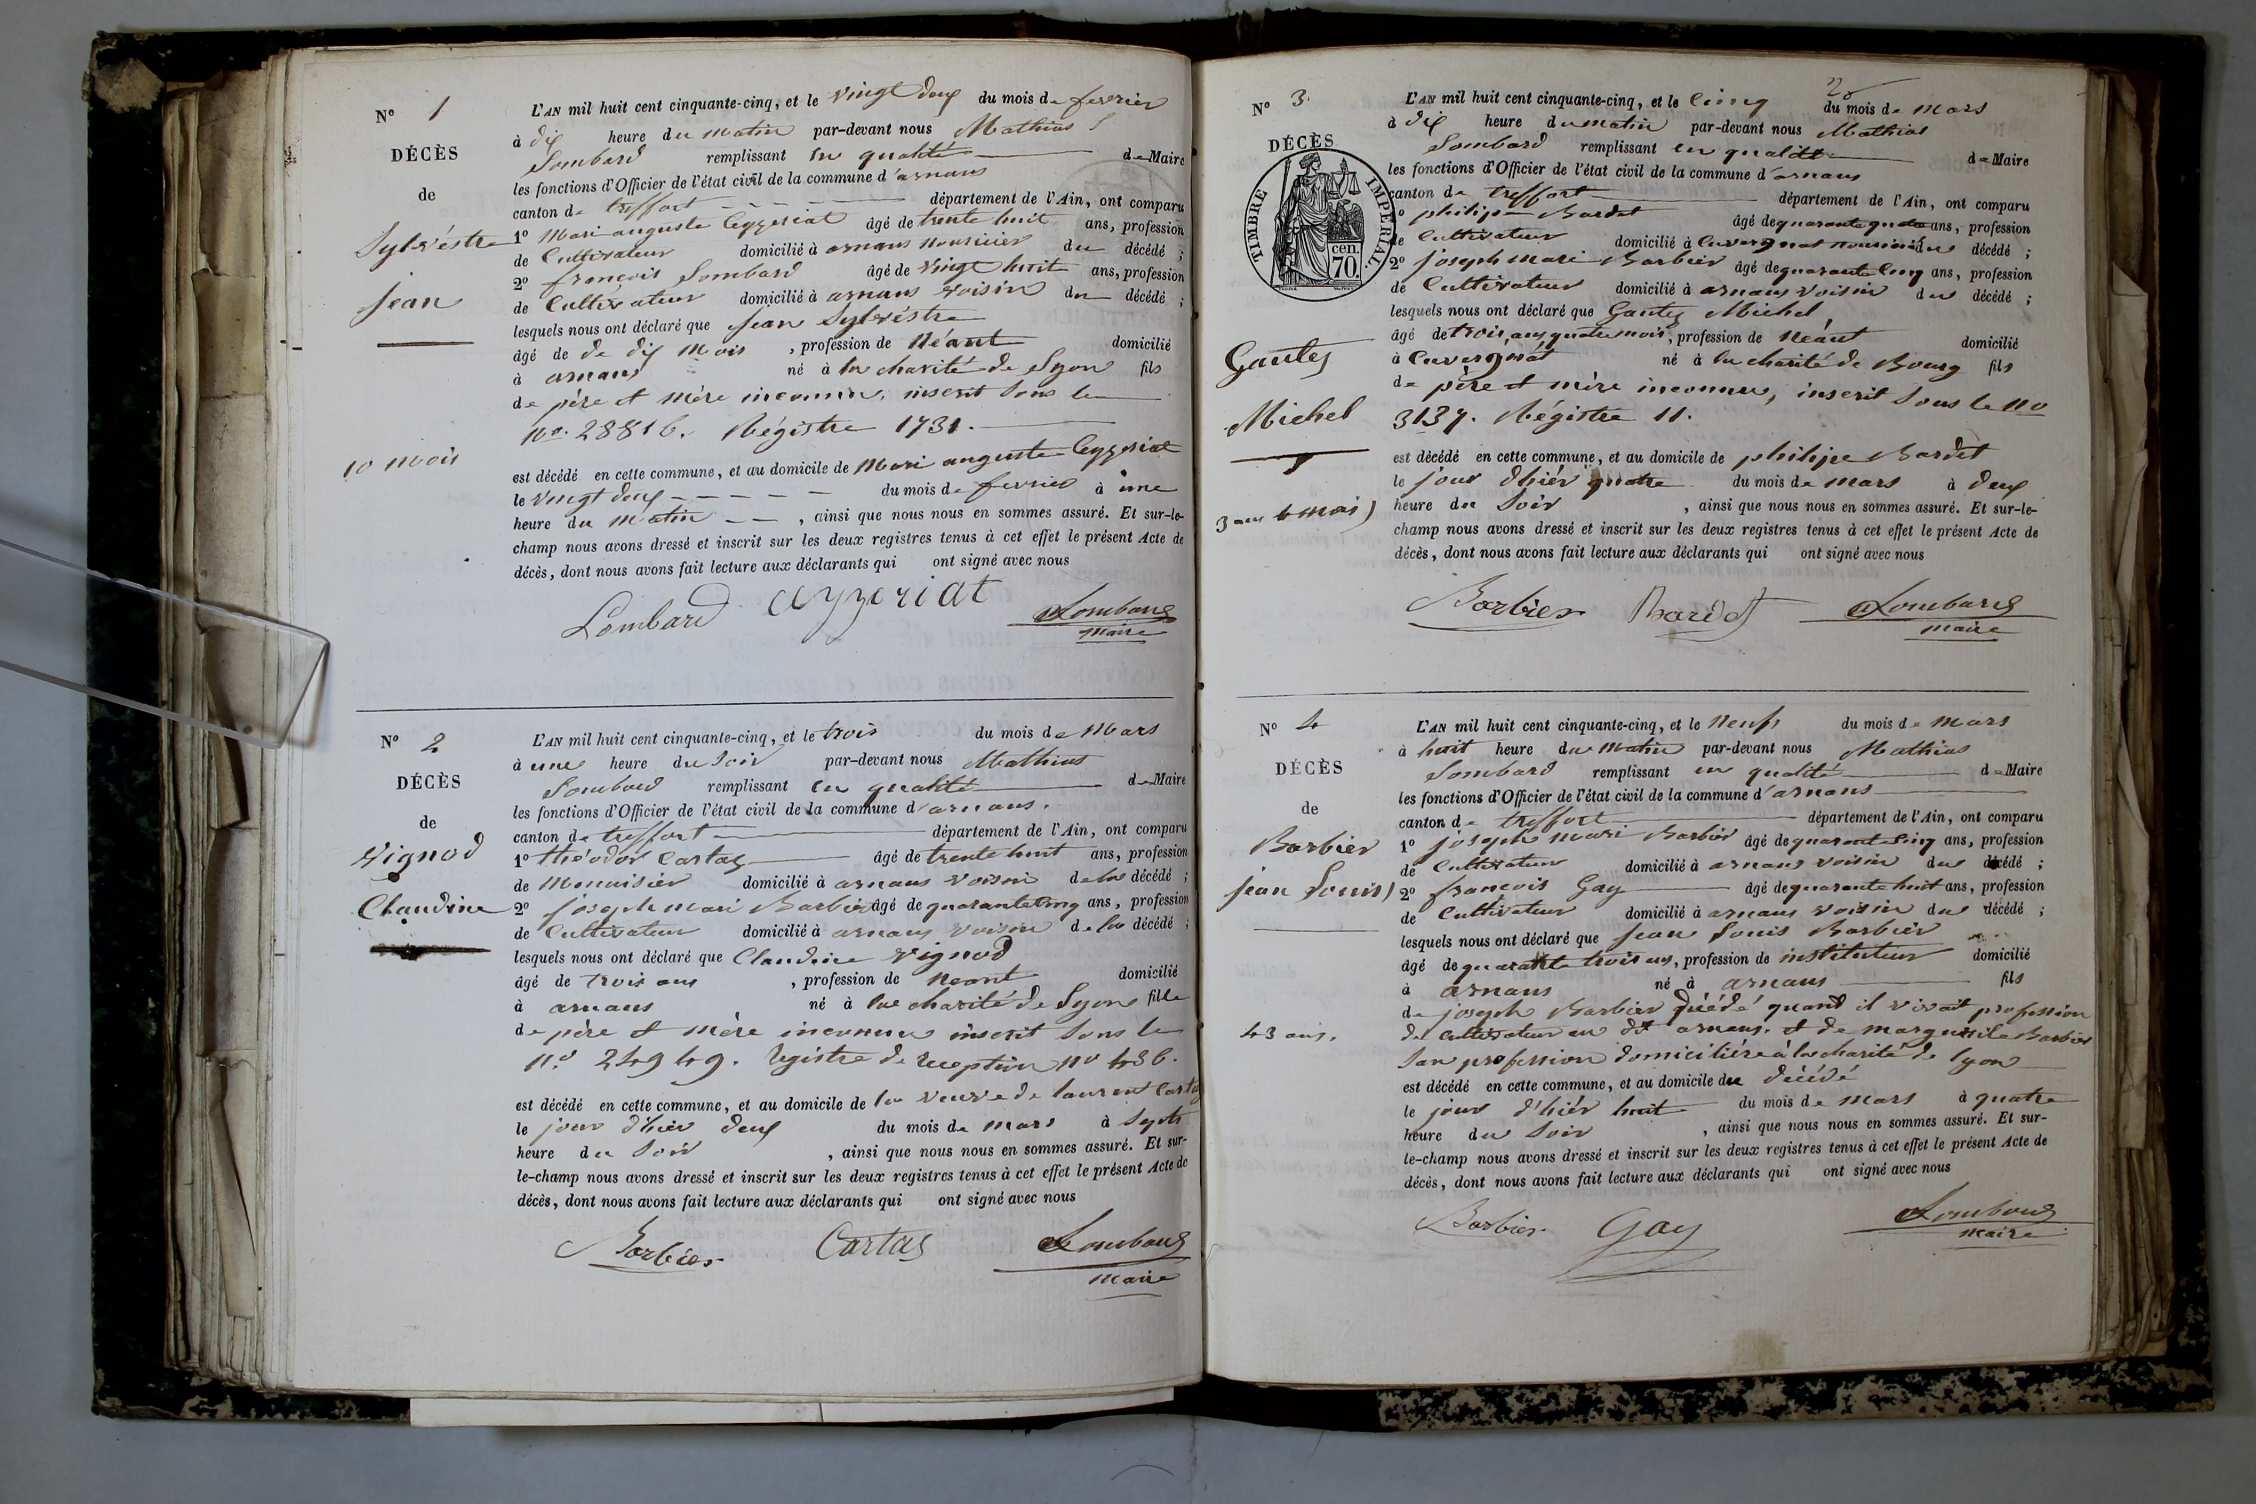 N° 1
DÉCÈS
de
Sylvéstre
jean
10 mois
L'AN mil huit cent cinquante-cinq, et le vingt deux du mois de fevrier
à dix heure du matin par-devant nous Mathias
Lombard remplissant en qualité de Maire
les fonctions d'Officier de l'état civil de la commune d'arnans
canton de treffort département de l'Ain, ont comparu
1° Mari auguste Ceyzeriat âgé de trente huit ans, profession
de Cultivateur domicilié à arnans nouricier du décédé ;
2° françois Lombard âgé de vingt huit ans, profession
de Cultivateur domicilié à arnans voisin du décédé ;
lesquels nous ont déclaré que jean Sylvéstre
âgé de de dix mois , profession de Néant domicilié
à arnans né à la charité de Lyon fils
de père et mère inconnu, inscrit sous le
no. 28816. Régistre 1731.
est décédé en cette commune, et au domicile de Mari auguste Ceyzeriat
le vingt deux du mois de fevrier à une
heure du matin , ainsi que nous nous en sommes assuré. Et sur-le-
champ nous avons dressé et inscrit sur les deux registres tenus à cet effet le présent Acte de
décès, dont nous avons fait lecture aux déclarants qui ont signé avec nous
Lombard Ceyzeriat Lombard
maire
N° 2
DÉCÈS
de
Vignod
Claudine
L'AN mil huit cent cinquante-cinq, et le trois du mois de Mars
à une heure du soir par-devant nous Mathias
Lombard remplissant en qualité de Maire
les fonctions d'Officier de l'état civil de la commune d'arnans.
canton de treffort département de l'Ain, ont comparu
1° théodor Cartas âgé de trente huit ans, profession
de Menuisier domicilié à arnans voisin de la décédé ;
2° joseph mari Barbier âgé de quarante cinq ans, profession
de Cultivateur domicilié à arnans voisin de la décédé ;
lesquels nous ont déclaré que Claudine Vignod
âgé de trois ans , profession de Neant domicilié
à arnans né à la charité de Lyon fille
de père et mère inconnu inscrit sous le
n.o 24949. Registre de reception no 436.
est décédé en cette commune, et au domicile de la veuve de laurent Cartas
le jour d'hier deux du mois de mars à Sept
heure du Soir , ainsi que nous nous en sommes assuré. Et sur-
le-champ nous avons dressé et inscrit sur les deux registres tenus à cet effet le présent Acte de
décès, dont nous avons fait lecture aux déclarants qui ont signé avec nous
Barbier Cartas Lombard
maire
N° 3
DÉCÈS
TIMBRE IMPÉRIAL.
cen.
70.
Gautez
Michel
3 ans 4 mois
L'AN mil huit cent cinquante-cinq, et le Cinq du mois de mars
à dix heure du matin par-devant nous Mathias
Lombard remplissant en qualité de Maire
les fonctions d'Officier de l'état civil de la commune d'arnans
canton de treffort département de l'Ain, ont comparu
1° philipe Bardet âgé de quarante quatre ans, profession
de Cultivateur domicilié à Cuvergnat nouricié du décédé ;
2° joseph mari Barbier âgé de quarante Cinq ans, profession
de Cultivateur domicilié à arnans voisin du décédé ;
lesquels nous ont déclaré que Gautez Michel
âgé de trois ans, quatre mois, profession de Néant domicilié
à Cuvergnat né à la charité de Bourg fils
de père et mère inconnu, inscrit sous le no
3137. Régistre 11.
est décédé en cette commune, et au domicile de philipe Bardet
le jour d'hiér quatre du mois de mars à deux
heure du Soir , ainsi que nous nous en sommes assuré. Et sur-le-
champ nous avons dressé et inscrit sur les deux registres tenus à cet effet le présent Acte de
décès, dont nous avons fait lecture aux déclarants qui ont signé avec nous
Barbier Bardet Lombard
maire
N° 4
DÉCÈS
de
Barbier
jean Louis
43 ans.
L'AN mil huit cent cinquante-cinq, et le Neuf du mois de mars
à huit heure du matin par-devant nous Mathias
Lombard remplissant en qualité de Maire
les fonctions d'Officier de l'état civil de la commune d'arnans
canton de treffort département de l'Ain, ont comparu
1° joseph mari Barbier âgé de quarante Cinq ans, profession
de Cultivateur domicilié à arnans voisin du décédé ;
2° françois Gay âgé de quarante huit ans, profession
de Cultivateur domicilié à arnans voisin du décédé ;
lesquels nous ont déclaré que jean Louis Barbier
âgé de quarante trois ans, profession de instituteur domicilié
à arnans né à arnans fils
de joseph Barbier décédé quand il vivait profession
de cultivateur au dit arnans. et de marguerite Barbier
San profession domiciliére à la charité de lyon
est décédé en cette commune, et au domicile du décédé
le jour d'hiér huit du mois de mars à quatre
heure du Soir , ainsi que nous nous en sommes assuré. Et sur-
le-champ nous avons dressé et inscrit sur les deux registres tenus à cet effet le présent Acte de
décès, dont nous avons fait lecture aux déclarants qui ont signé avec nous
Barbier Gay Lombard
maire